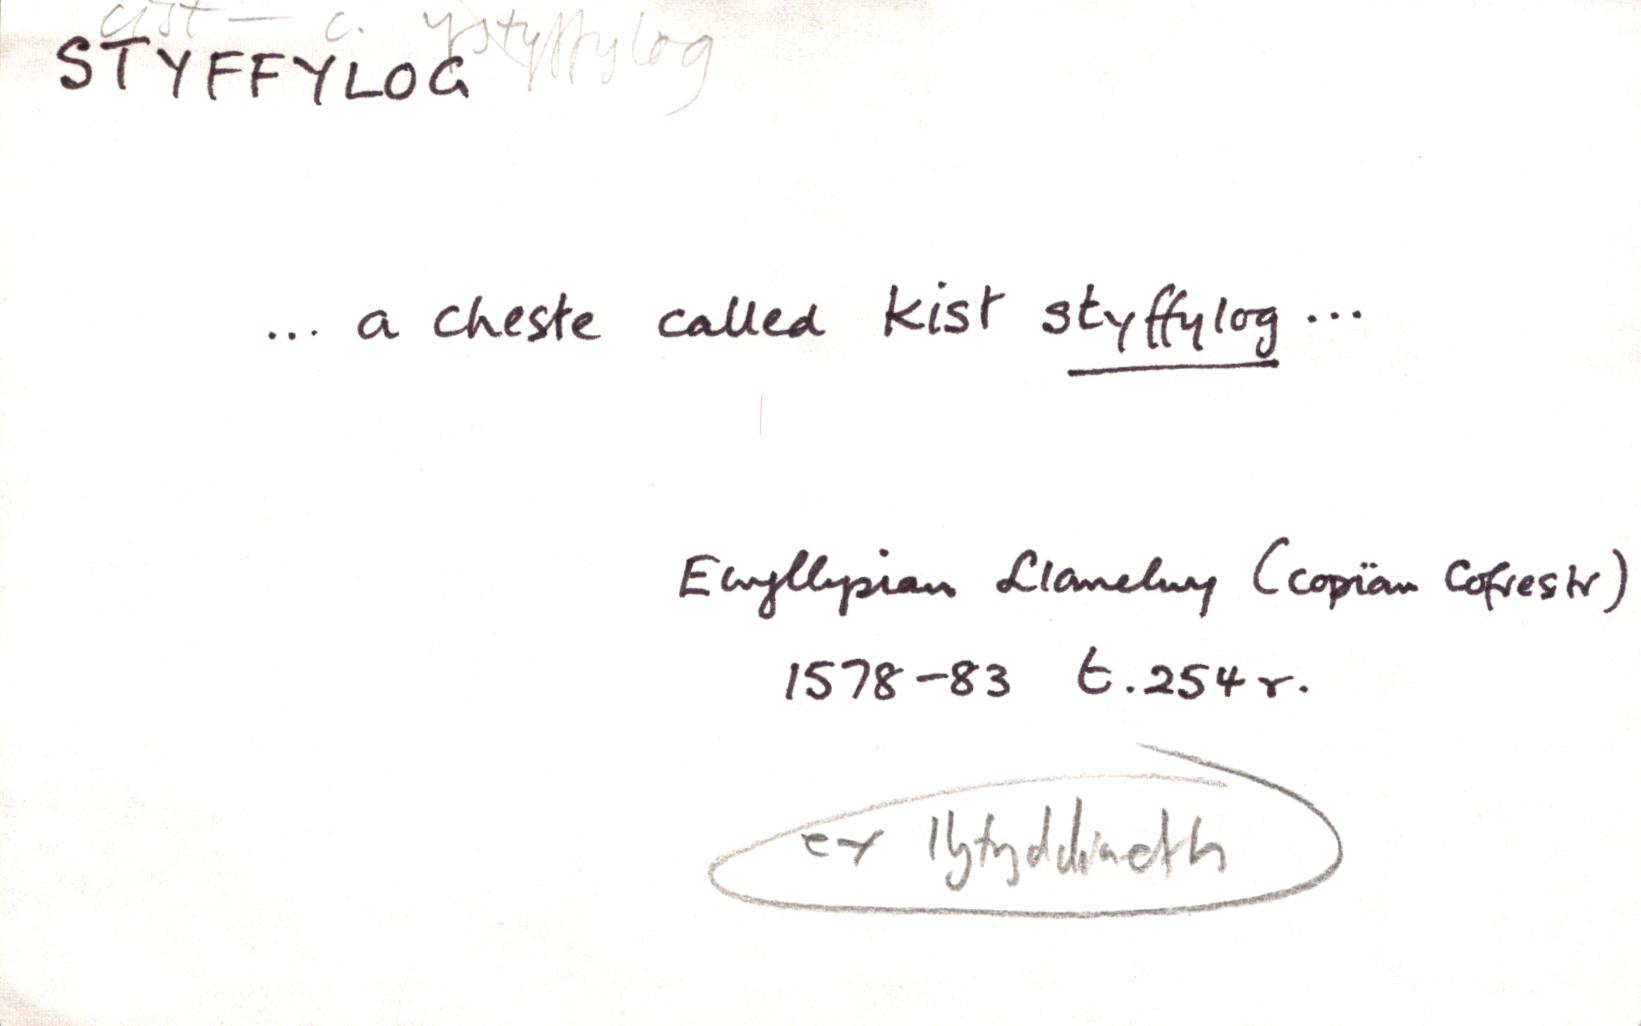 cist — c. ystyffylog
STYFFYLOG
... a cheste called kist styffylog ...
Ewyllysian Llanelwy (copïau Cofrestr)
1578-83 t. 254 r.
ex llythyddiaeth